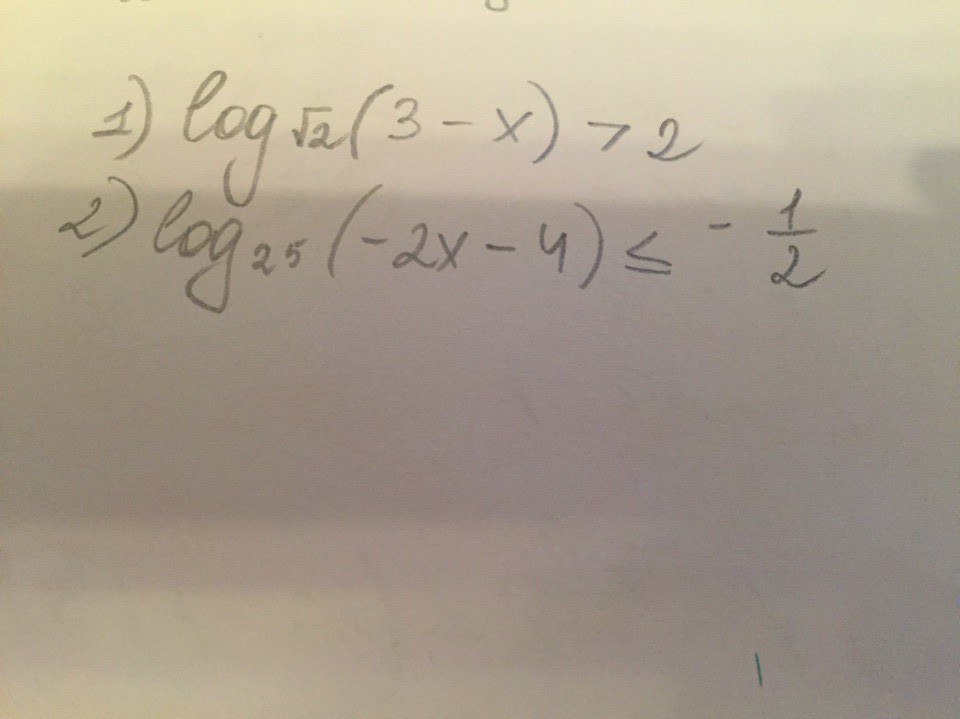 1) log√2(3 - x) > 2
2) log25(-2x - 4) ≤ - 1/2